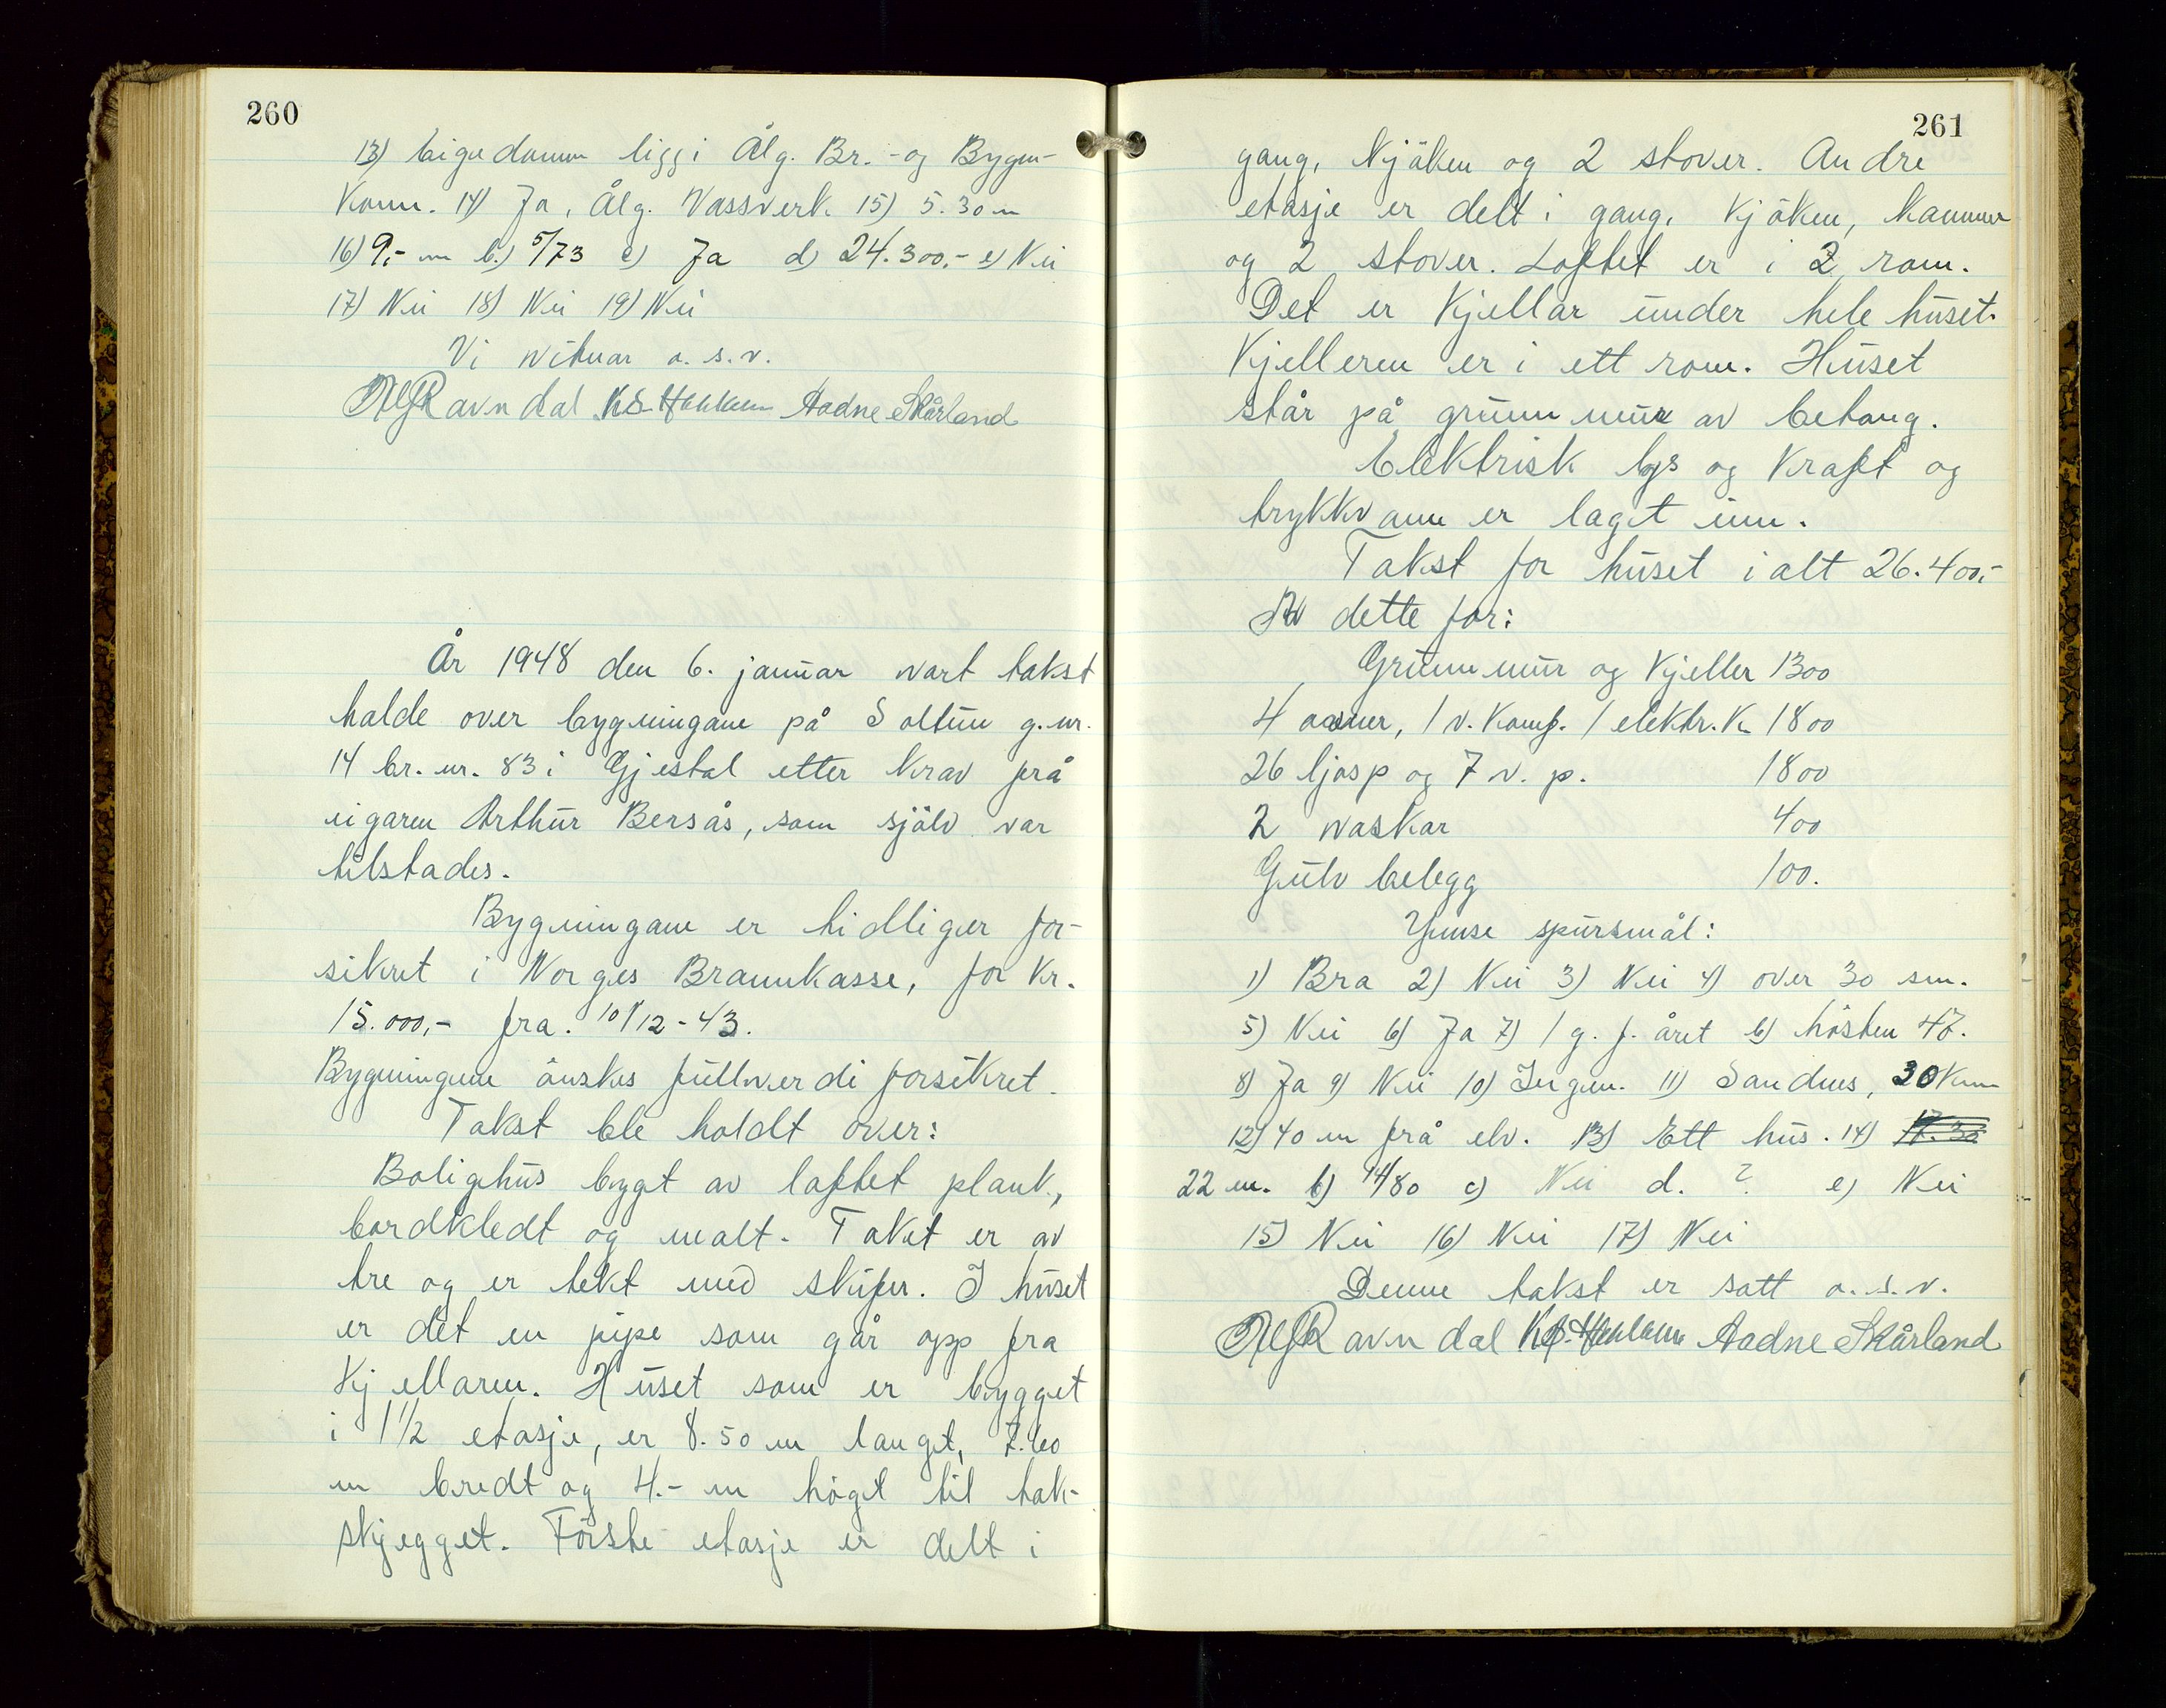 260
13) Eigedomm ligg i Ålg. Br.- og Bygn-
Komm. 14) Ja, Ålg. Vassverk. 15) 5.30 m
16) 9,- m b.) 5/73 c) Ja d) 24.300,- e) Nei
17) Nei 18) Nei 19) Nei
Vi vitnar o. s. v.
Ravndal Aadne Skårland
År 1948 den 6. januar vart takst
halde over bygningane på Soltun g.nr.
14 br. nr. 83 i Gjestal etter krav frå
eigaren Arthur Bersås, som sjölv var
tilstades.
Bygningane er tidligere for-
sikret i Norges Brannkasse, for kr.
15.000,- fra. 10/12-43.
Bygningene önskes fullverdi forsikret.
Takst ble holdt over:
Bolighus bygt av laftet plank,
bordkledt og malt. Taket er av
tre og er tekt med skifer. I huset
er det en pipe som går opp fra
Kjellaren. Huset som er bygget
i 1½ etasje, er 8.50 m langt, 7.60
m bredt og 4.- m högt til tak-
skjegget. Förste etasje er delt i
261
gang, Kjöken og 2 stover. Andre
etasje er delt i gang, Kjöken, kammer
og 2 stover. Loftet er i 2 rom.
Det er Kjellar under hele huset.
Kjelleren er i ett rom. Huset
står på grunnmur av betong.
Elektrisk lys og Kraft og
trykkvann er laget inn.
Takst for huset i alt 26.400,-
Av dette for:
Grunnmur og Kjeller 1300
4 ovner, 1 v. Komf. 1 elektr. K. 1800
26 ljosp og 7 v. p. 1800
2 vaskar 400
Gulv belegg 100.
Ymse spursmål:
1) Bra 2) Nei 3) Nei 4) over 30 sm.
5) Nei 6) Ja 7) 1 g. p. året b) hösten 47.
8) Ja 9) Nei 10) Ingen. 11) Sandnes, 30 Km
12) 40 m frå elv. 13) Ett hus. 14)
22 m. b) 14/80 c) Nei d. ? e) Nei
15) Nei 16) Nei 17) Nei
Denne takst er satt o. s. v.
Ravndal Aadne Skårland